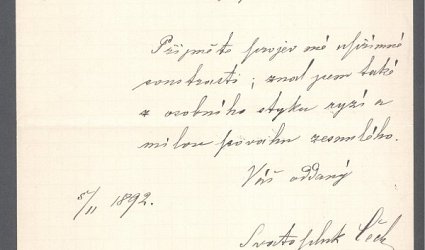 Přijměte projev mé upřímné
soustrasti; znal jsem také
z osobního styku ryzí a
milou povahu zesnulého.
Váš oddaný
5/II 1892.
Svatopluk Čech